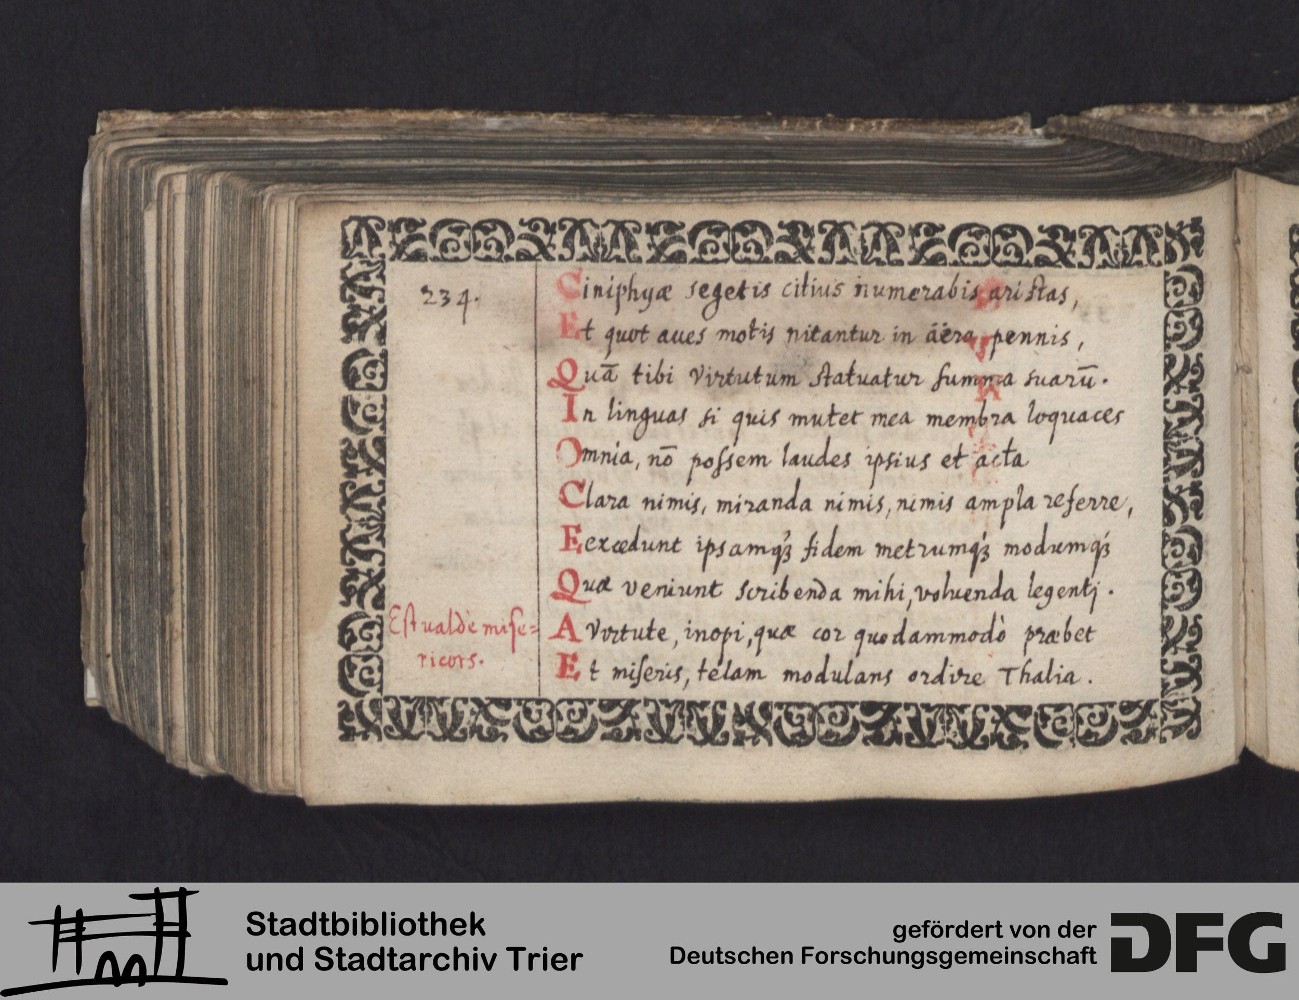 234.
Ciniphyæ segetis citius numerabis aristas,
Et quot aues motis nitantur in aëra pennis,
Quā tibi virtutum statuatur summa suarū.
In linguas si quis mutet mea membra loquaces
Omnia, nō possem laudes ipsius et acta
Clara nimis, miranda nimis, nimis ampla referre,
Eexcedunt ipsamqȝ fidem metrumqȝ modumqȝ
Quæ veniunt scribenda mihi, voluenda legenti.
A virtute, inopi, quæ cor quodammodò præbet
Et miseris, telam modulans ordire Thalia.
Est ualdè mise=
ricors.
Stadtbibliothek
und Stadtarchiv Trier
gefördert von der
Deutschen Forschungsgemeinschaft
DFG